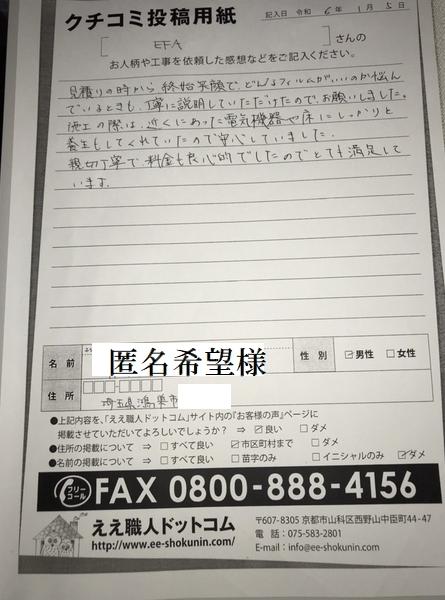 クチコミ投稿用紙
記入日 令和 6年 1月 5日
[ EFA ] さんの
お人柄や工事を依頼した感想などをご記入ください。
見積りの時から終始笑顔で、どんなフィルムがいいのか悩ん
でいるときも、丁寧に説明していただけたので、お願いしました。
施工の際は、近くにあった電気機器や床にしっかりと
養生もしてくれていたので安心していました。
親切丁寧で、料金も良心的でしたのでとても満足して
います。
名前 匿名希望様 性別 ☑男性 □女性
住所 □□□-□□□□
埼玉県鴻巣市
●上記内容を、「ええ職人ドットコム」サイト内の『お客様の声』ページに
掲載させていただいてよろしいでしょうか? ⇒ ☑良い □ダメ
●住所の掲載について ⇒ □すべて良い ☑市区町村まで □ダメ
●名前の掲載について ⇒ □すべて良い □苗字のみ □イニシャルのみ ☑ダメ
フリーコール FAX 0800-888-4156
ええ職人ドットコム
http://www.ee-shokunin.com/
〒607-8305 京都市山科区西野山中臣町44-47
電話 : 075-583-2801
E-mail : info@ee-shokunin.com